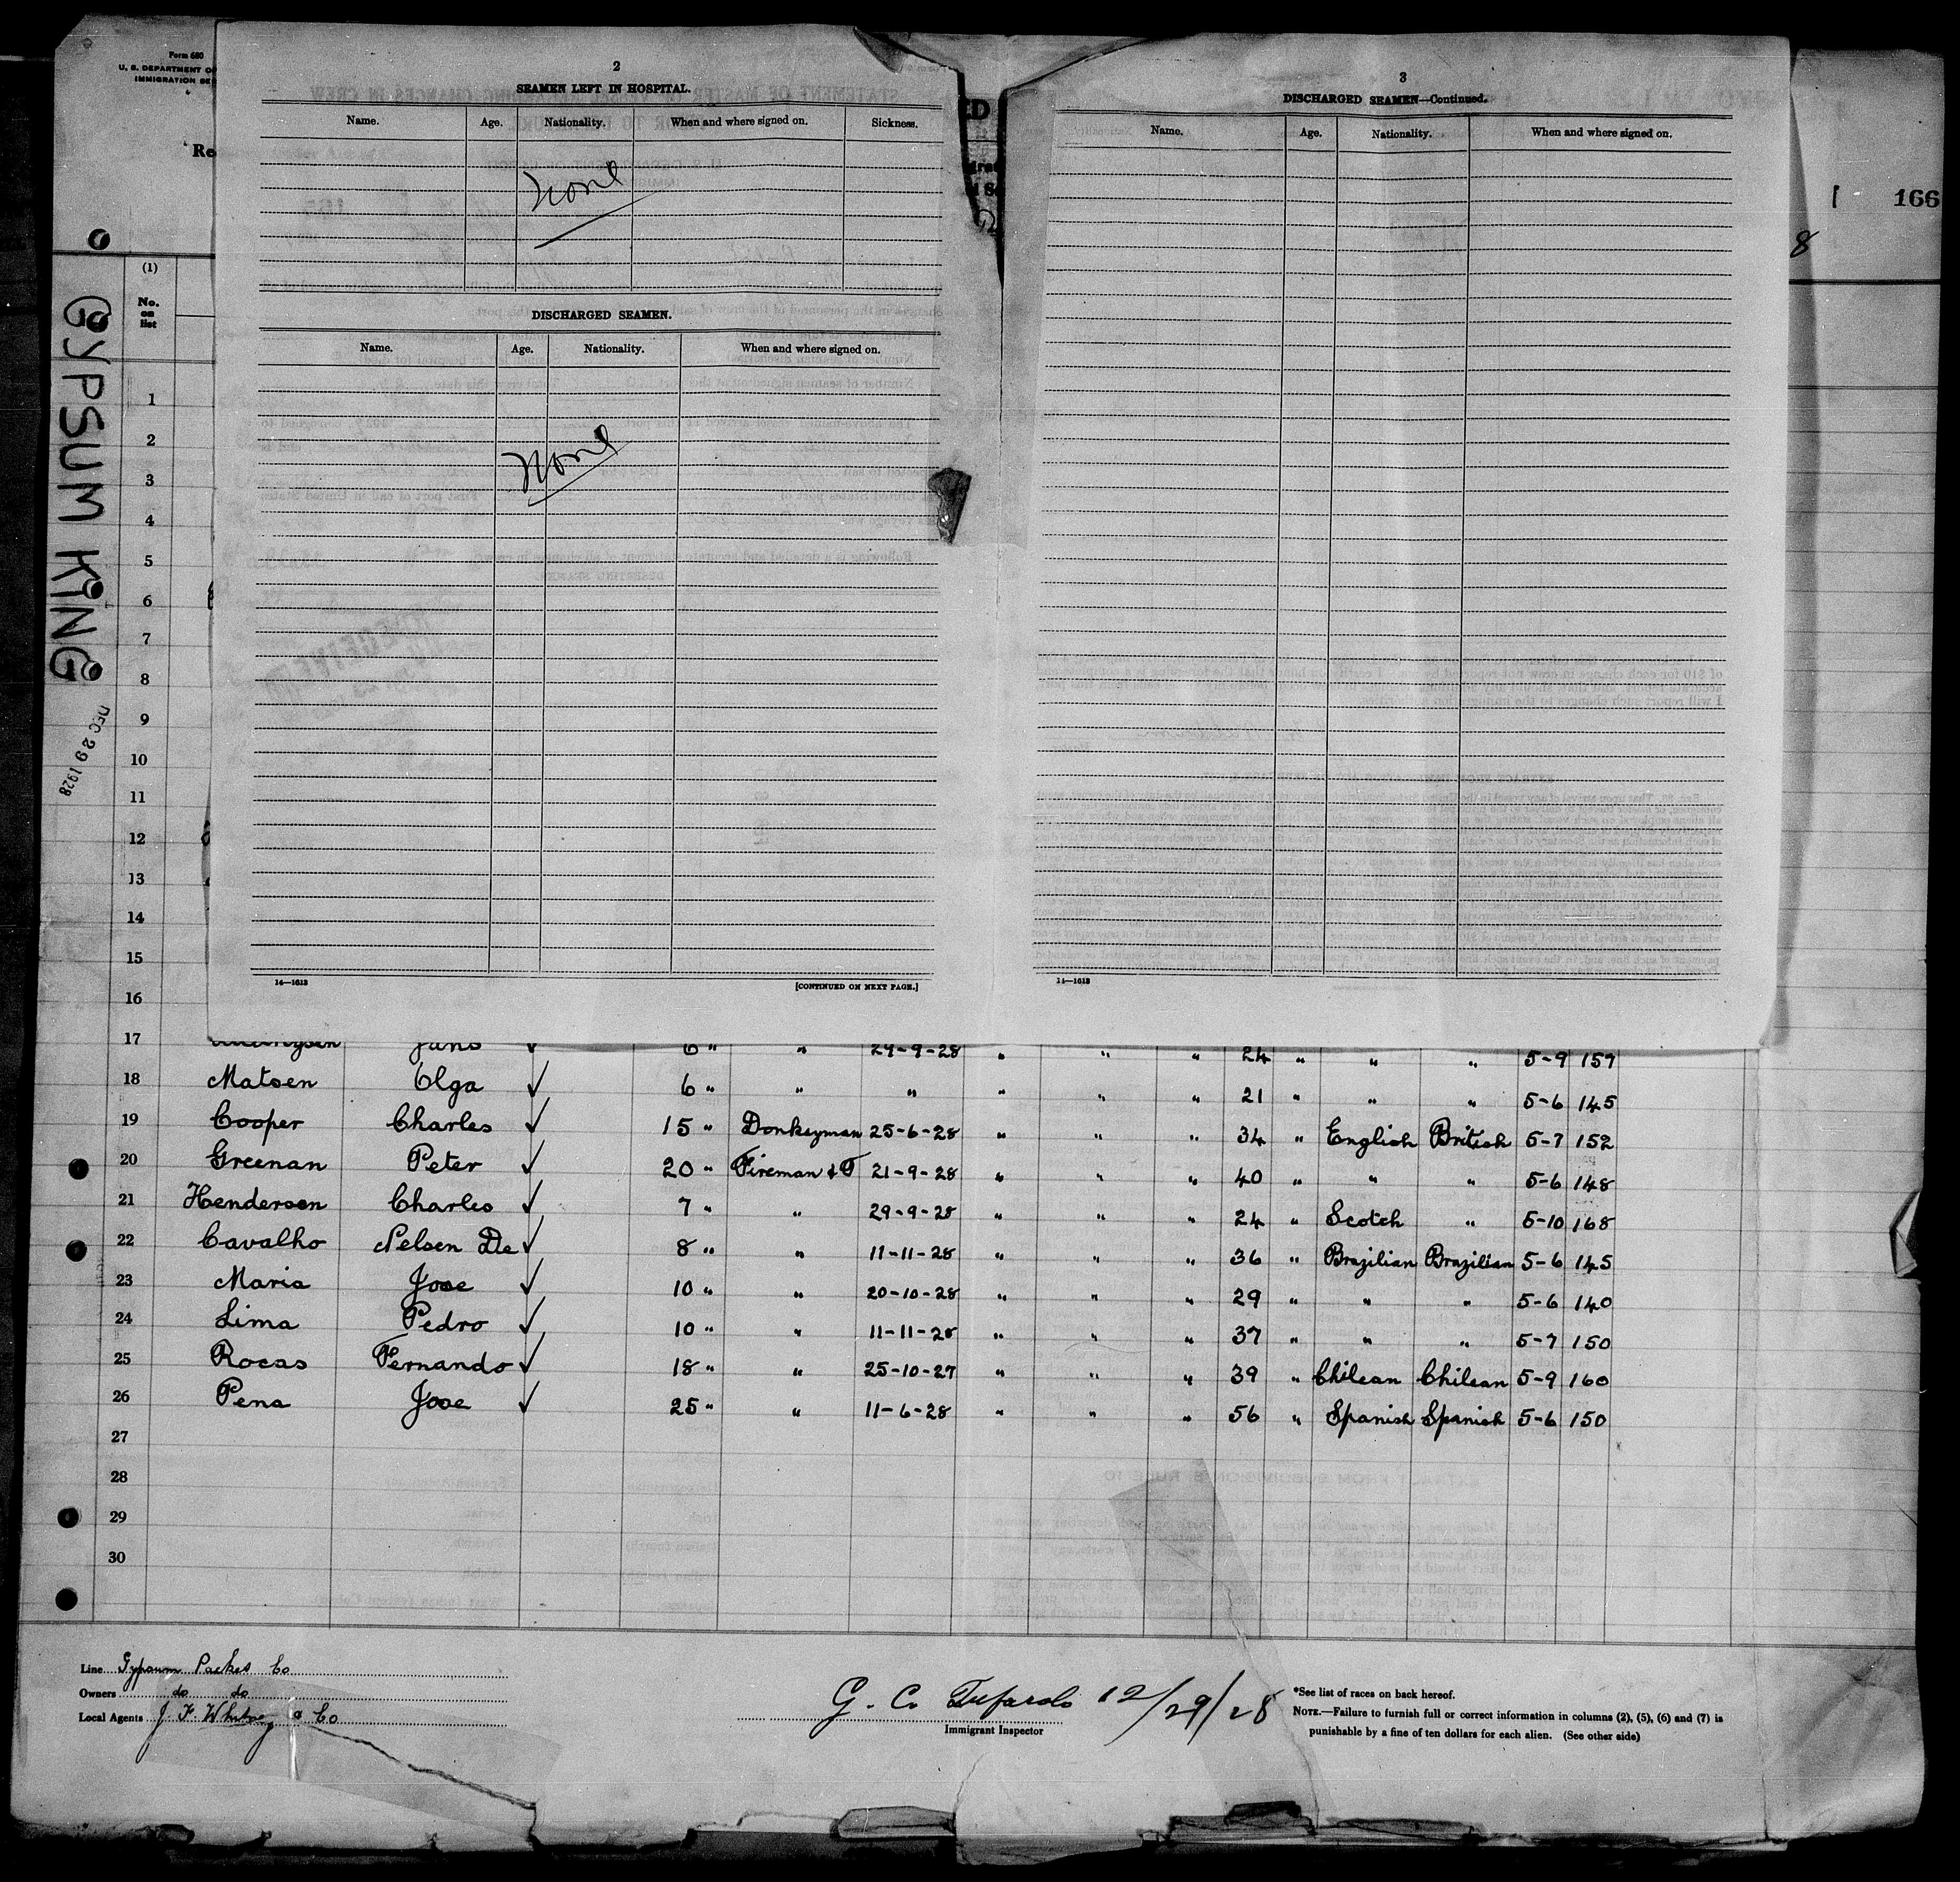 Form 680
U. S. DEPARTMENT O
IMMIGRATION SE
Re
166
8
GYPSUM KING
DEC 29 1928
(1)
No. on list
2
SEAMEN LEFT IN HOSPITAL.
Name. Age. Nationality. When and where signed on. Sickness.
None
DISCHARGED SEAMEN.
Name. Age. Nationality. When and where signed on.
None
14—1613 [CONTINUED ON NEXT PAGE.]
3
DISCHARGED SEAMEN—Continued.
Name. Age. Nationality. When and where signed on.
14—1613
1
2
3
4
5
6
7
8
9
10
11
12
13
14
15
16
17 6 " " 24-9-28 " " " 24 " " " 5-9 157
18 Matsen Olga ✓ 6 " " " " " " 21 " " " 5-6 145
19 Cooper Charles ✓ 15 " Donkeyman 25-6-28 " " " 34 " English British 5-7 152
20 Greenan Peter ✓ 20 " Fireman & T 21-9-28 " " " 40 " " " 5-6 148
21 Henderson Charles ✓ 7 " " 29-9-28 " " " 24 " Scotch " 5-10 168
22 Cavalho Nelson De ✓ 8 " " 11-11-28 " " " 36 " Brazilian Brazilian 5-6 145
23 Maria Jose ✓ 10 " " 20-10-28 " " " 29 " " " 5-6 140
24 Lima Pedro ✓ 10 " " 11-11-28 " " " 37 " " " 5-7 150
25 Rocas Fernando ✓ 18 " " 25-10-27 " " " 39 " Chilean Chilean 5-9 160
26 Pena Jose ✓ 25 " " 11-6-28 " " " 56 " Spanish Spanish 5-6 150
27
28
29
30
Line Gypsum Packet Co
Owners do do
Local Agents J F Whitney & Co
G. C. 12/29/28
Immigrant Inspector
*See list of races on back hereof.
NOTE.—Failure to furnish full or correct information in columns (2), (5), (6) and (7) is
punishable by a fine of ten dollars for each alien. (See other side)